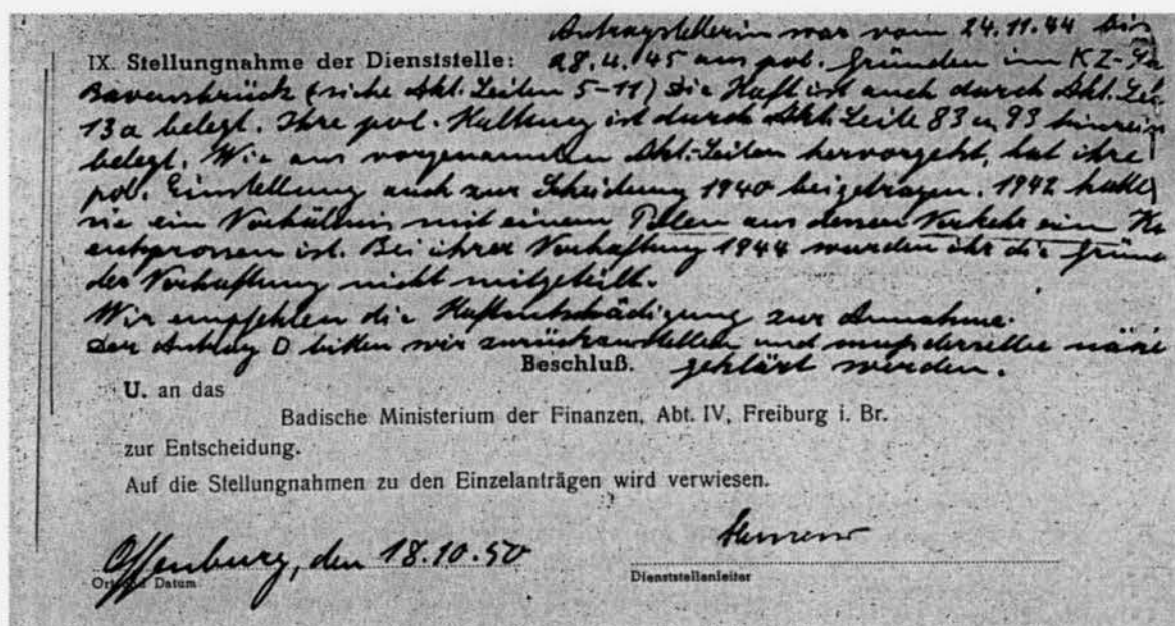 Antragstellerin war vom 24.11.44 bis
IX. Stellungnahme der Dienststelle: 28.4.45 aus pol. Gründen im KZ-La
Ravensbrück (siehe Akt. Seiten 5-11) Die Haft ist auch durch Akt. Sei
13a belegt. Ihre pol. Haltung ist durch Akt. Seite 83 u. 93 hinrei
belegt. Wie aus vorgenannten Akt.-Seiten hervorgeht, hat ihre
pol. Einstellung auch zur Scheidung 1940 beigetragen. 1942 hatte
sie ein Verhältnis mit einem Polen aus dessen Verkehr ein Ki
entsprossen ist. Bei ihrer Verhaftung 1944 wurden ihr die Grün
der Verhaftung nicht mitgeteilt.
Wir empfehlen die Haftentschädigung zur Annahme.
Den Antrag D bitten wir zurückzustellen und muß derselbe näh
Beschluß. geklärt werden.
U. an das
Badische Ministerium der Finanzen, Abt. IV, Freiburg i. Br.
zur Entscheidung.
Auf die Stellungnahmen zu den Einzelanträgen wird verwiesen.
Offenburg, den 18.10.50
Ort und Datum Dienststellenleiter